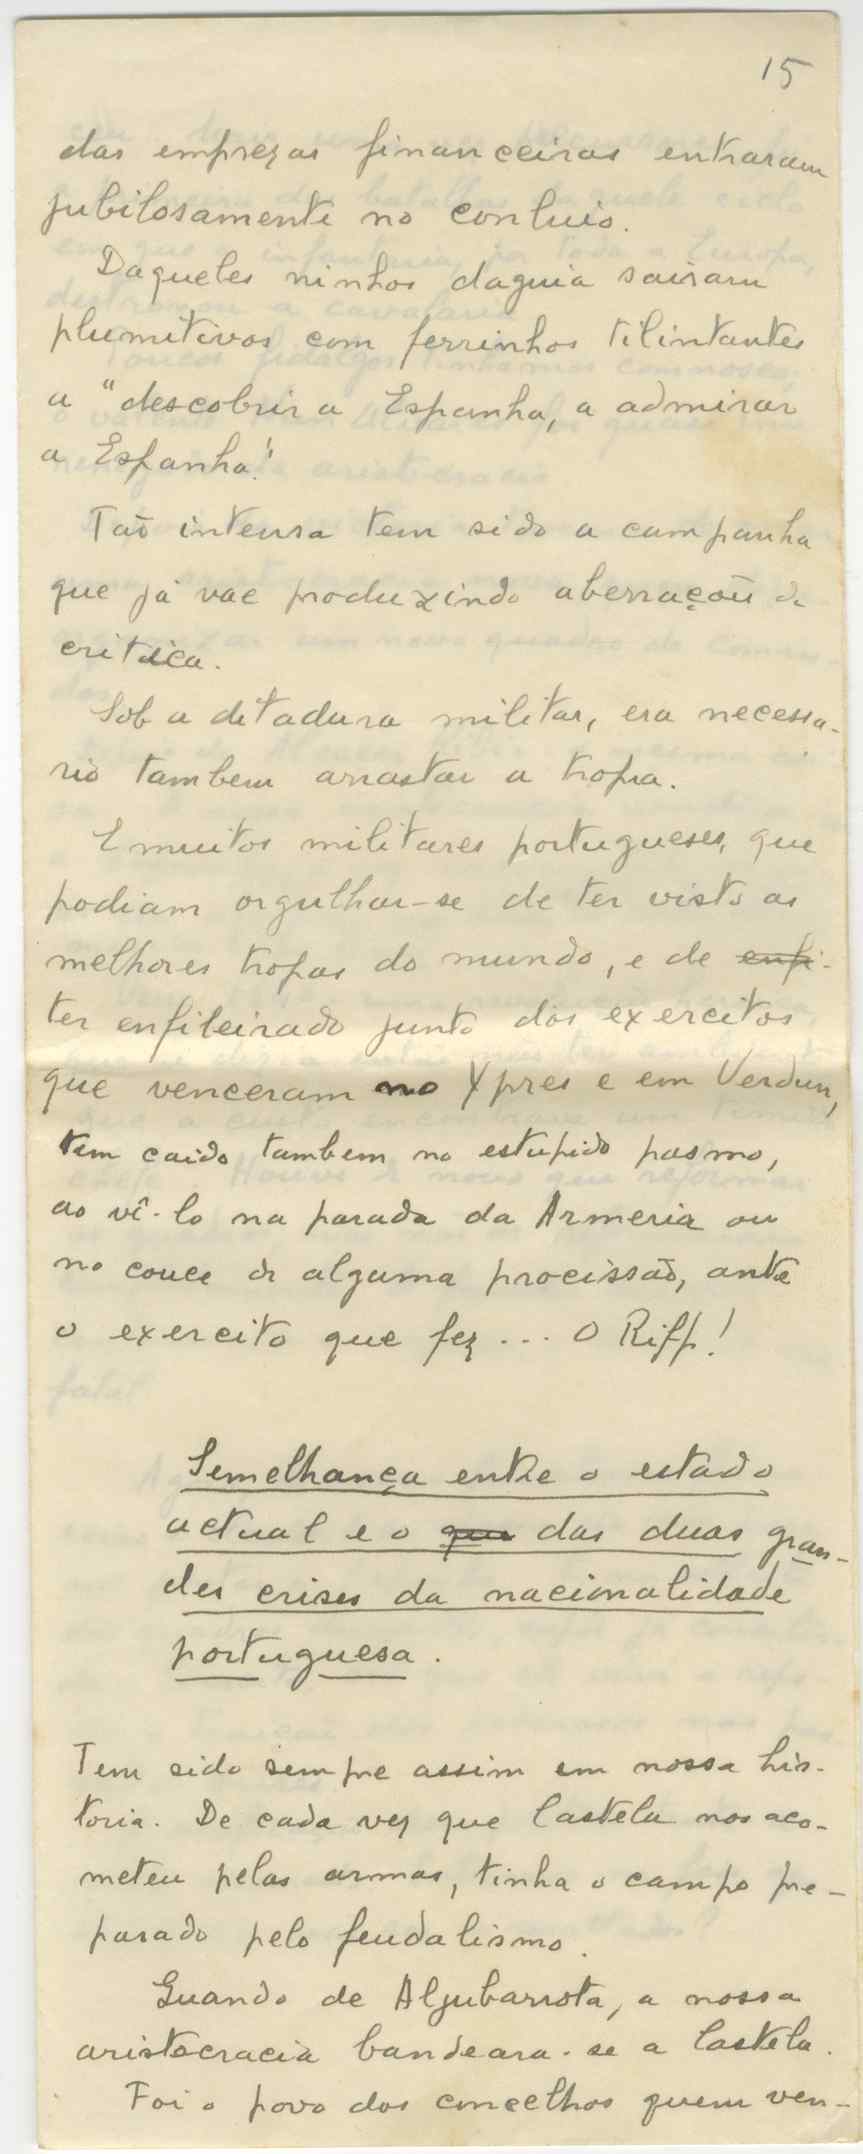 15
das emprezas financeiras entraram
jubilosamente no conluio.
Daqueles ninhos daguia sairam
plumitivos com ferrinhos tilintantes
a "descobrir a Espanha, a admirar
a Espanha."
Tão intensa tem sido a campanha
que já vae produzindo aberrações de
critica.
Sob a ditadura militar, era necessa-
rio tambem arrastar a tropa.
E muitos militares portugueses, que
podiam orgulhar-se de ter visto as
melhores tropas do mundo, e de enfi-
ter enfileirado junto dos exercitos
que venceram no Ypres e em Verdun,
tem caido tambem no estupido pasmo,
ao vê-lo na parada da Armeria ou
no couce de alguma procissão, ante
o exercito que fez... O Riff!
Semelhança entre o estado
actual e o que das duas gran-
des crises da nacionalidade
portuguesa.
Tem sido sempre assim em nossa his-
toria. De cada vez que Castela nos aco-
meteu pelas armas, tinha o campo pre-
parado pelo feudalismo.
Quando de Aljubarrota, a nossa
aristocracia bandeara-se a Castela.
Foi o povo dos concelhos quem ven-